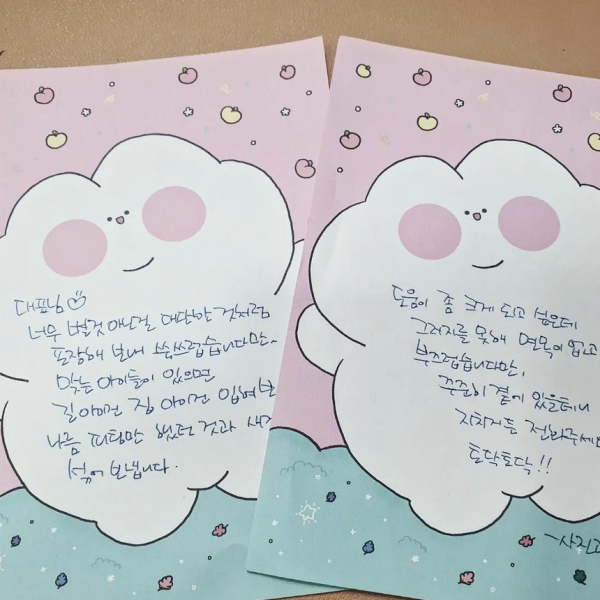 대표님
너무 별것 아닌걸 대단한 것처럼
포장해 보내 쑥쓰럽습니다만,
맞는 아이들이 있으면
길 아이건 집 아이건 입혀보
나름 피팅만 했던 것과 새
섞어 보냅니다.
도움이 좀 크게 되고 싶은데
그러지를 못해 면목이 없고
부끄럽습니다만,
꾸준히 곁에 있을테니
지치거든 전화주세
토닥토닥!!